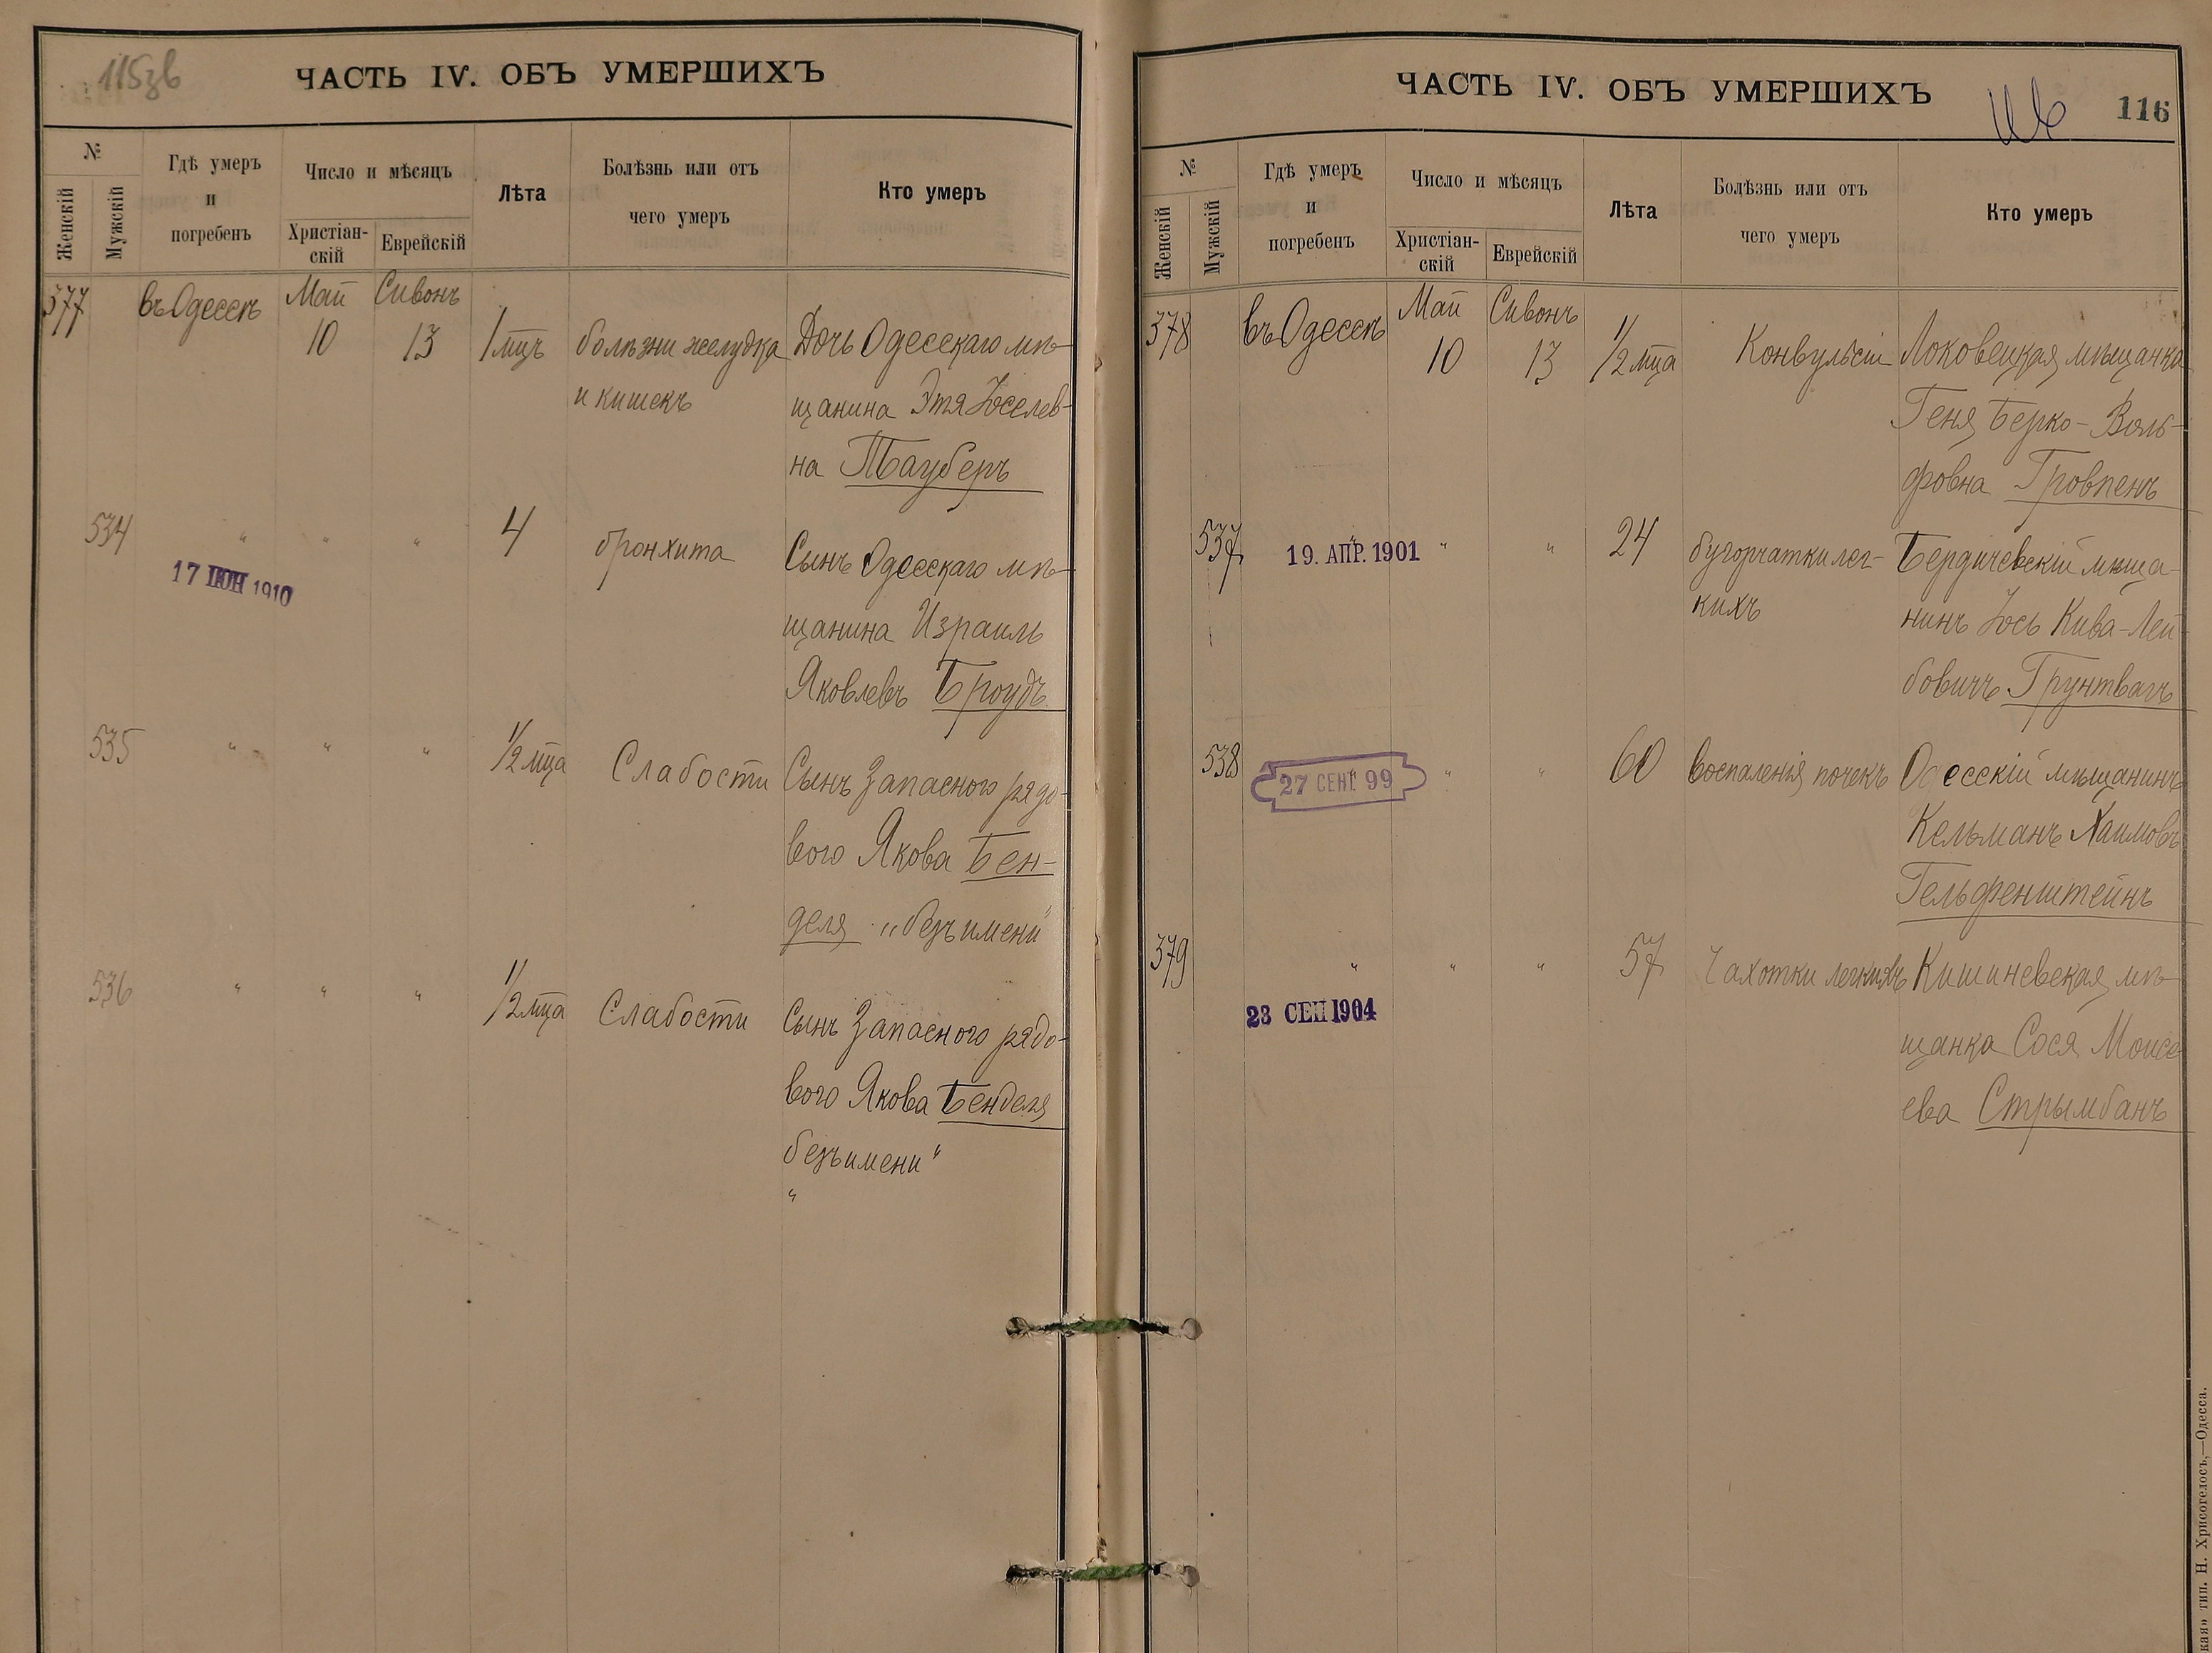 115зв
ЧАСТЬ IV. ОБЪ УМЕРШИХЪ
№
Женскій
Мужскій
Гдѣ умеръ
и
погребенъ
Число и мѣсяцъ
Христіан-
скій
Еврейскій
Лѣта
Болѣзнь или отъ
чего умеръ
Кто умеръ
377 въ Одессѣ Май Сивонъ
10 13 1 мцъ болѣзни желудка Дочь Одесскаго мѣ-
и кишекъ щанина Этя Іоселев-
на Тауберъ
534 " " " 4 бронхита Сынъ Одесскаго мѣ-
17 ІЮН 1910
щанина Израиль
Яковлевъ Броудъ
535 " " " 1/2 мца Слабости Сынъ Запасного рядо-
вого Якова Бен-
деля „безъ имени"
536 " " " 1/2 мца Слабости Сынъ Запасного рядо-
вого Якова Бенделя
безъ имени"
"
ЧАСТЬ IV. ОБЪ УМЕРШИХЪ
116
№
Женскій
Мужскій
Гдѣ умеръ
и
погребенъ
Число и мѣсяцъ
Христіан-
скій
Еврейскій
Лѣта
Болѣзнь или отъ
чего умеръ
Кто умеръ
378 въ Одессѣ Май Сивонъ
10 13 1/2 мца Конвульсіи мѣщанка
Геня Берко-Воль-
фовна Гровпенъ
537 " " " 24 бугорчатки лег- Бердичевскій мѣща-
19. АПР. 1901
кихъ нинъ Іось Кива-Лей-
бовичъ Грунтвагъ
538 " " " 60 воспаленія почекъ Одесскій мѣщанинъ
27 СЕНТ 99
Кельманъ Хаимовъ
Гельфенштейнъ
379 " " " 57 Чахотки легкихъ Кишиневская мѣ-
23 СЕН 1904
щанка Сося Моисе-
ева Стрымбанъ
кая» тип. Н. Хрисогелосъ,—Одесса.